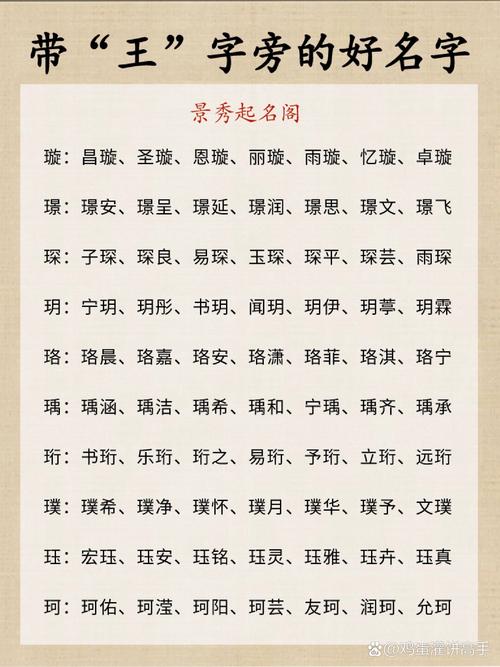 带“王”字旁的好名字
景秀起名阁
璇：昌璇、圣璇、恩璇、丽璇、雨璇、忆璇、卓璇
璟：璟安、璟呈、璟延、璟润、璟思、璟文、璟飞
琛：子琛、琛良、易琛、玉琛、琛平、琛芸、雨琛
玥：宁玥、玥彤、书玥、闻玥、玥伊、玥葶、玥霖
珞：珞晨、珞嘉、珞安、珞潇、珞菲、珞淇、珞宁
瑀：瑀涵、瑀洁、瑀希、瑀和、宁瑀、瑀齐、瑀承
珩：书珩、乐珩、珩之、易珩、予珩、立珩、远珩
璞：璞希、璞净、璞怀、璞月、璞华、璞予、文璞
珏：宏珏、珏安、珏铭、珏灵、珏雅、珏卉、珏真
珂：珂佑、珂滢、珂阳、珂芸、友珂、润珂、允珂
@鸡蛋灌饼高手